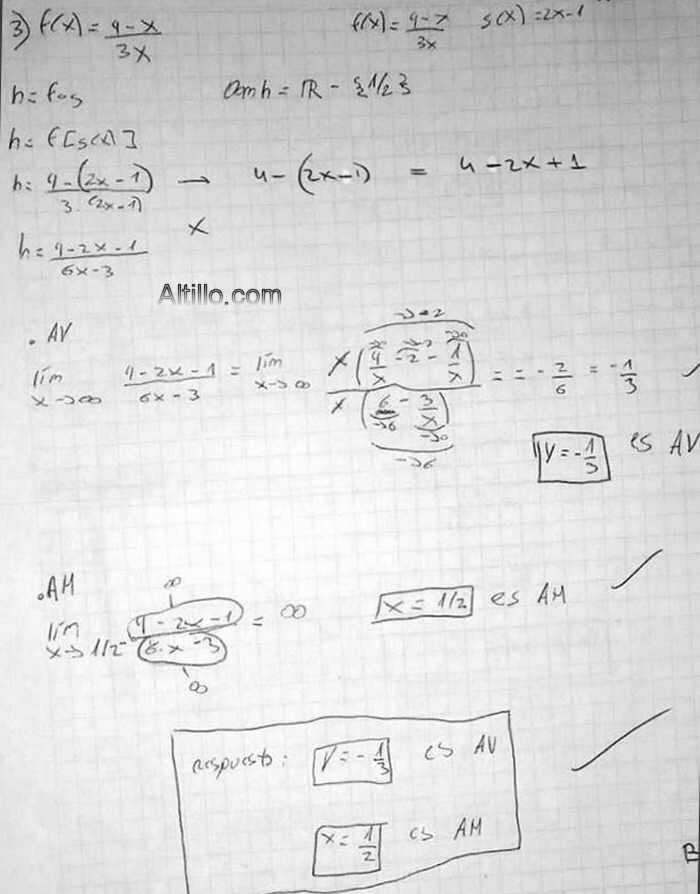 3) f(x) = 4-x / 3x    f(x) = 4-x / 3x    g(x) = 2x-1
h = fog    Domh = ℝ - {1/2}
h = f[g(x)]
h = 4-(2x-1) / 3.(2x-1) → 4-(2x-1) = 4-2x+1
x
h = 4-2x-1 / 6x-3
Altillo.com
. AV
lím x→∞ 4-2x-1 / 6x-3 = lím x→∞ x(4/x - 2 - 1/x) / x(6 - 3/x) = = -2/6 = -1/3 ✓
→-2
→6
→0
→6
y = -1/3 es AV
. AH
lím x→1/2 4-2x-1 / 6.x-3 = ∞    x = 1/2 es AH ✓
∞
∞
respuesta: y = -1/3 es AV ✓
x = 1/2 es AH
B